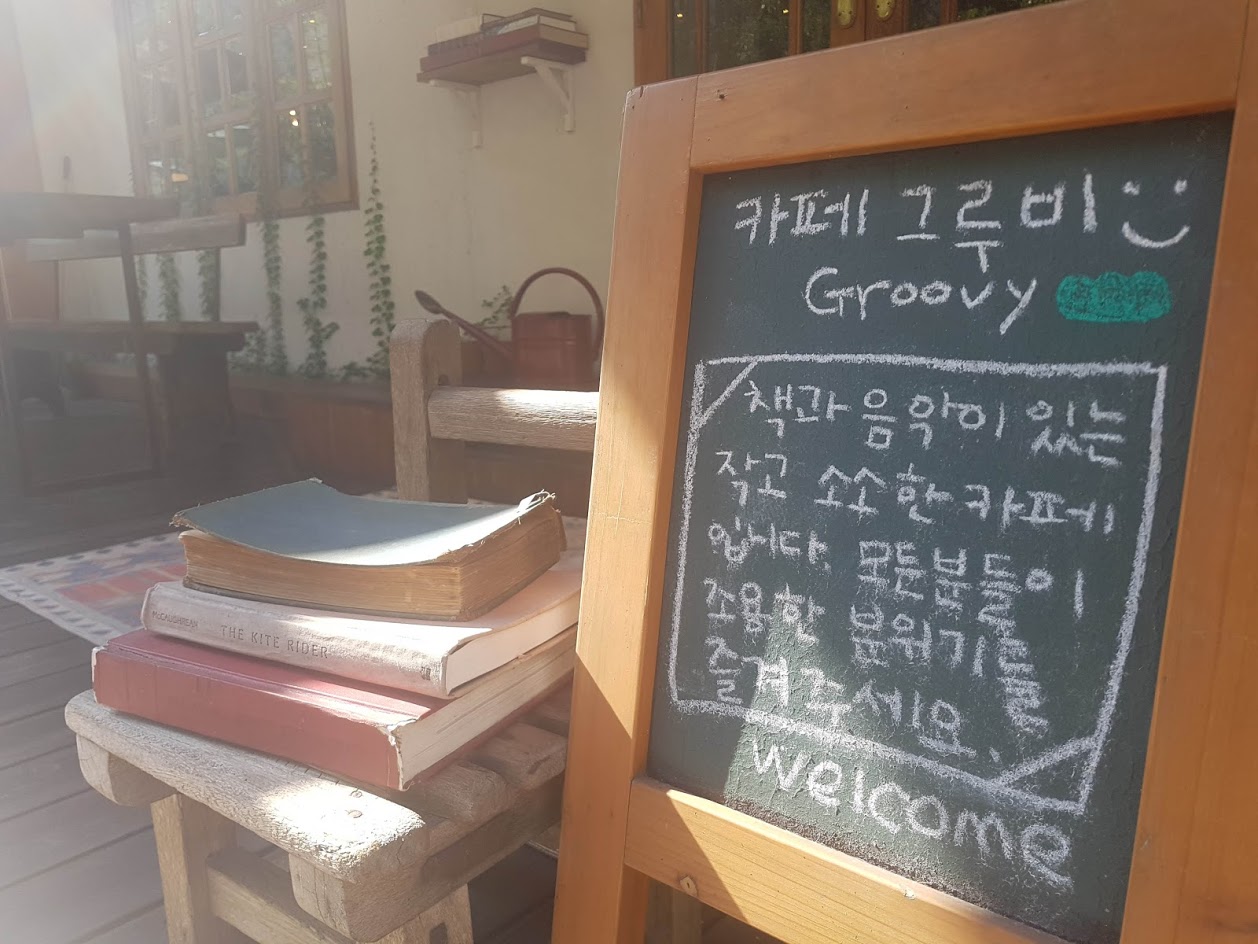 카페 그루비
Groovy
책과 음악이 있는
작고 소소한 카페
입니다. 모든분들이
조용한 분위기를
즐겨주세요.
welcome
McCAUGHREAN THE KITE RIDER